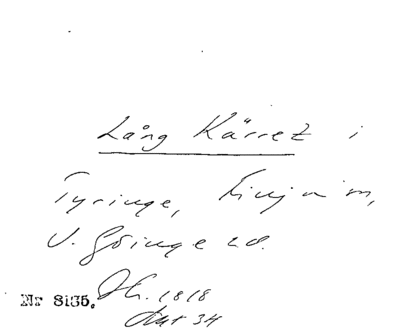 Lång Kärret i
Tyringe, Finja sn,
V. Göinge hd.
Nr 8135. 1818
34